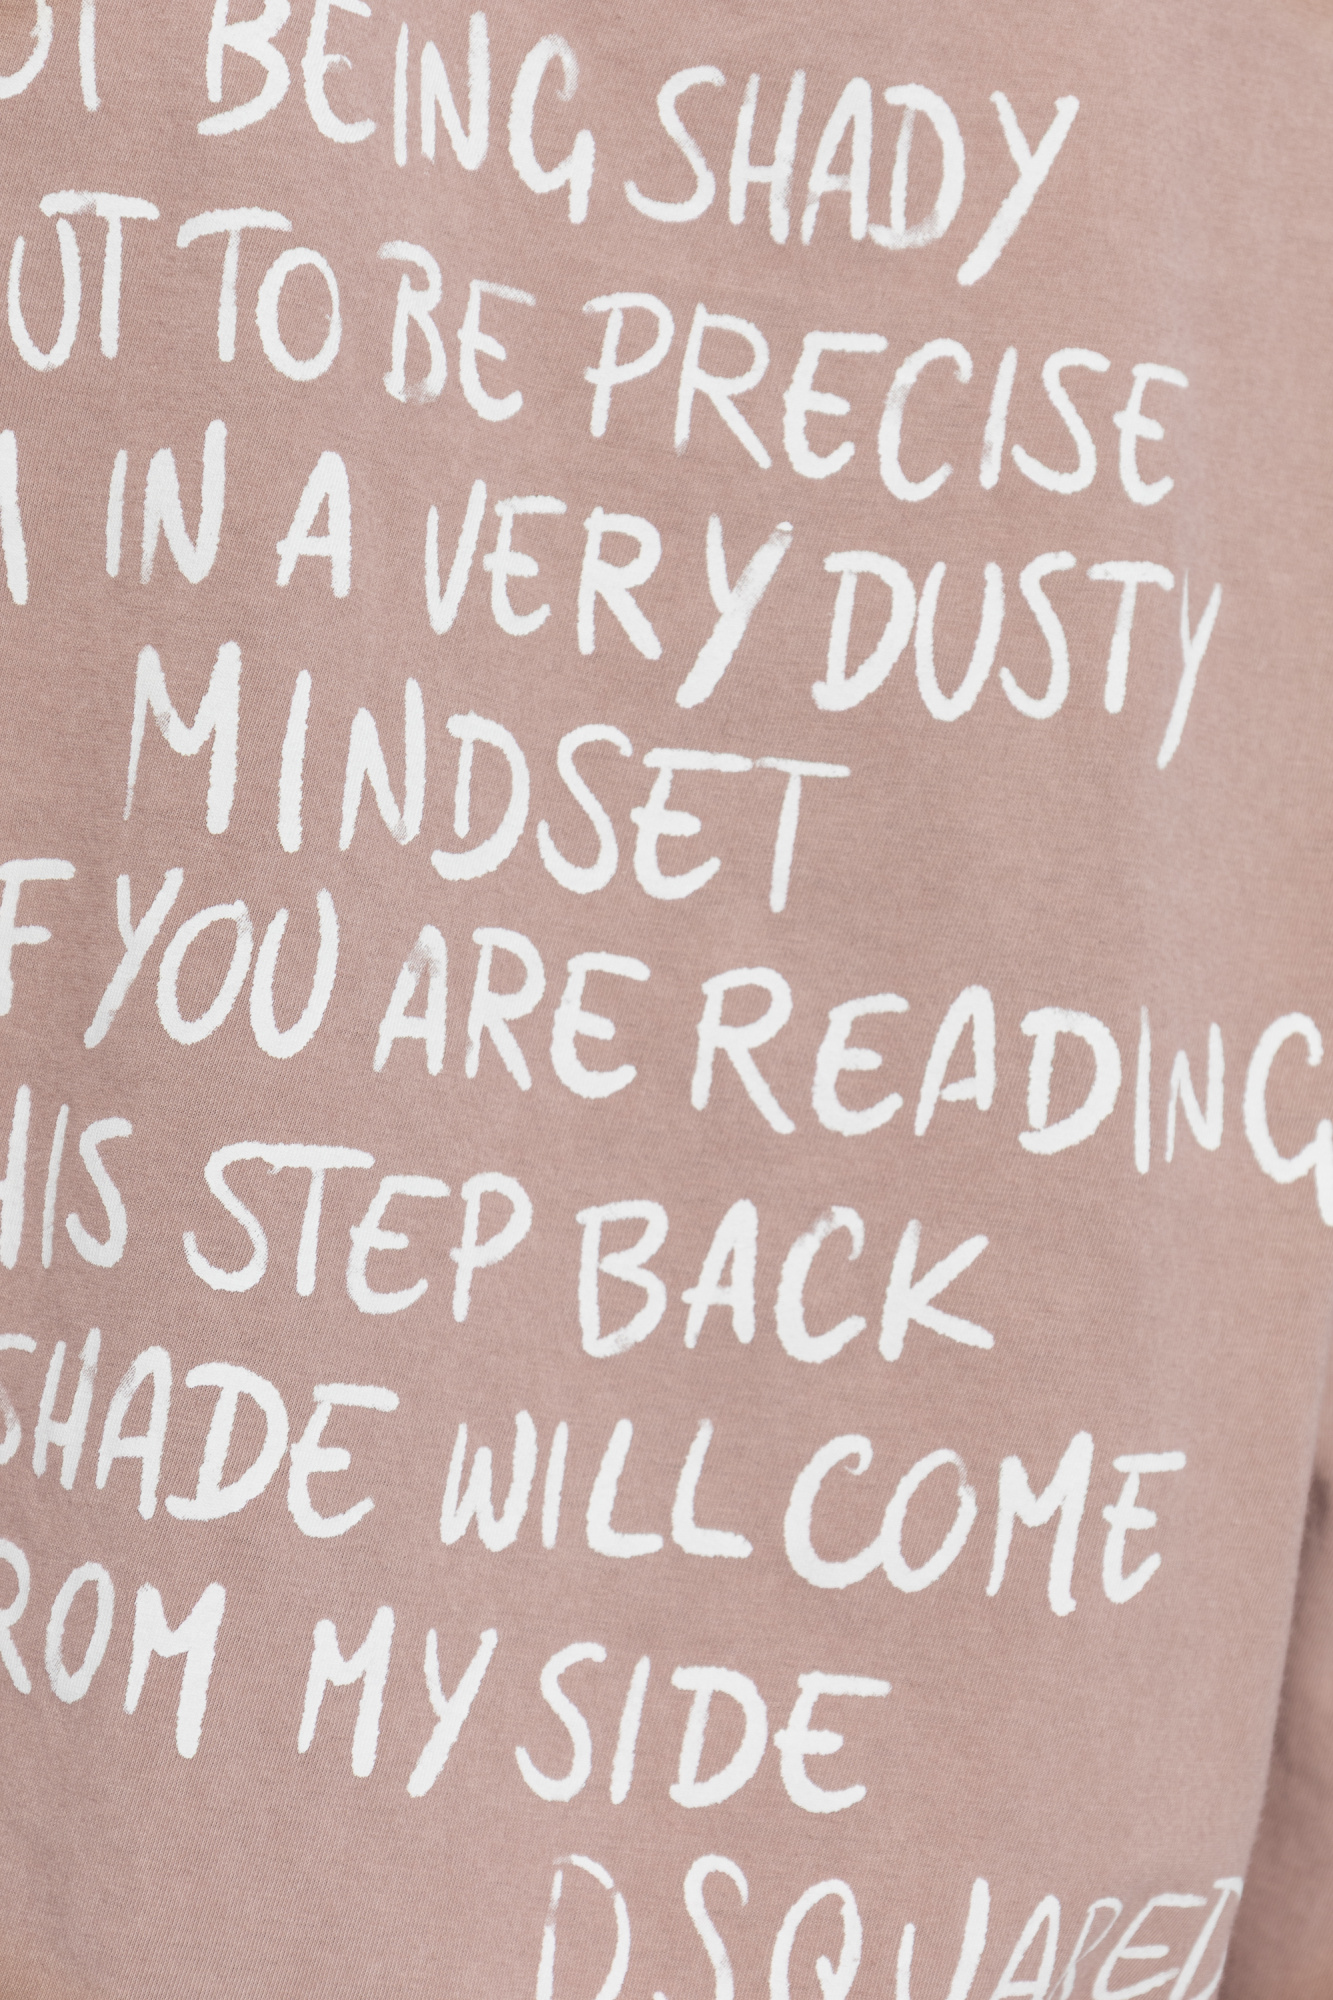 OT BEING SHADY
UT TO BE PRECISE
M IN A VERY DUSTY
MINDSET
IF YOU ARE READING
HIS STEP BACK
SHADE WILL COME
ROM MY SIDE
DSQUARED